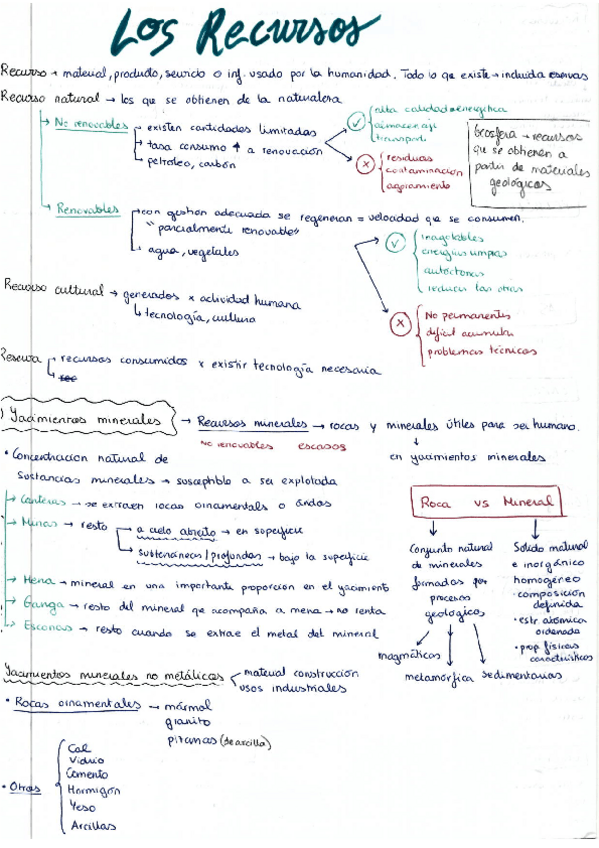 Los Recursos
Recurso → material, producto, servicio o inf. usado por la humanidad. Todo lo que existe → incluida reservas
Recurso natural → los que se obtienen de la naturaleza
→ No renovables → existen cantidades limitadas
→ tasa consumo ↑ a renovación
→ petróleo, carbón
✓ alta calidad energética
almacenaje
transport.
✗ residuos
contaminación
agotamiento
Geosfera → recursos
que se obtienen a
partir de materiales
geológicos
→ Renovables → con gestion adecuada se regeneran = velocidad que se consumen.
"parcialmente renovable"
→ agua, vegetales
✓ inagotables
energías limpias
autóctonas
reducen las otras
✗ No permanentes
dificil acumular
problemas técnicos
Recurso cultural → generados x actividad humana
↳ tecnología, cultura
Reserva → recursos consumidos x existir tecnología necesaria
) Yacimientos minerales → Recursos minerales → rocas y minerales útiles para ser humano.
No renovables escasos
↓
en yacimientos minerales
• Concentración natural de
sustancias minerales → susceptible a ser explotada
→ Canteras → se extraen rocas ornamentals o áridos
→ Minas → resto → a cielo abierto → en superficie
→ subterráneas/profundas → bajo la superficie
→ Mena → mineral en una importante proporcion en el yacimiento
→ Ganga → resto del mineral que acompaña a mena → no renta
→ Escorias → resto cuando se extrae el metal del mineral
Roca vs Mineral
Conjunto natural
de minerales
formados por
procesos
geologicos
magmáticos
metamórfica
sedimentarias
Sólido natural
e inorgánico
homogéneo
• composición
definida
• estr. atómica
ordenada
• prop. físicas
características
Yacimientos minerales no metálicos material construcción
usos industriales
• Rocas ornamentales → mármol
granito
pizarras (de arcilla)
• Otras
Cal
Vidrio
Cemento
Hormigón
Yeso
Arcillas